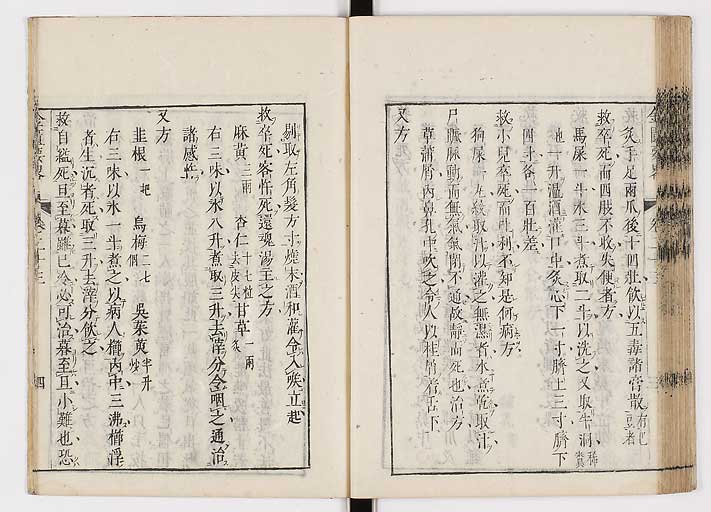 灸手足兩爪後十四壯飲以五毒諸膏散有巴豆者
救卒死而四肢不收失便者方
馬屎一斗水三斗煮取二斗以洗之又取牛洞稀糞
也一升溫酒灌口中灸心下一寸臍上三寸臍下
四寸各一百壯差
救小兒卒死而吐利不知是何病方
狗屎一丸絞取汁以灌之無濕者水煮乾取汁
尸蹶脉動而無氣氣閉不通故靜而死也治方
菖蒲屑內鼻孔中吹之令人以桂屑着舌下
又方
剔取左角髮方寸燒末酒和灌令入喉立起
救卒死客忤死還魂湯主之方
麻黃三兩 杏仁去皮尖七十粒 甘草一兩炙
右三味以水八升煮取三升去滓分令咽之通治
諸感忤
又方
韭根一把 烏梅二七個 吳茱萸半升炒
右三味以水一斗煮之以病人櫛內中三沸櫛浮
者生沉者死取三升去滓分飲之
救自縊死旦至暮雖已冷必可治暮至旦小難也恐